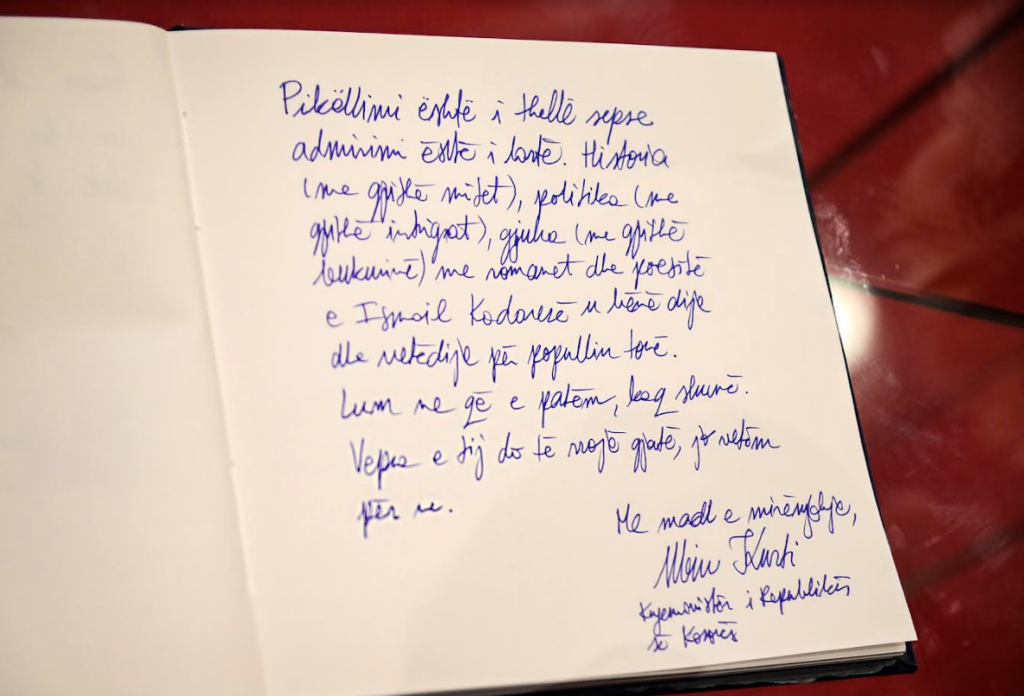 Pikëllimi është i thellë sepse
admirimi është i lartë. Historia
(me gjithë mitet), politika (me
gjithë intrigat), gjuha (me gjithë
bukurinë) me romanet dhe poezitë
e Ismail Kadaresë u bënë dije
dhe vetëdije për popullin tonë.
Lum ne që e patëm, kaq shumë.
Vepra e tij do të rrojë gjatë, jo vetëm
për ne.
Me mall e mirënjohje,
Albin Kurti
Kryeministër i Republikës
së Kosovës